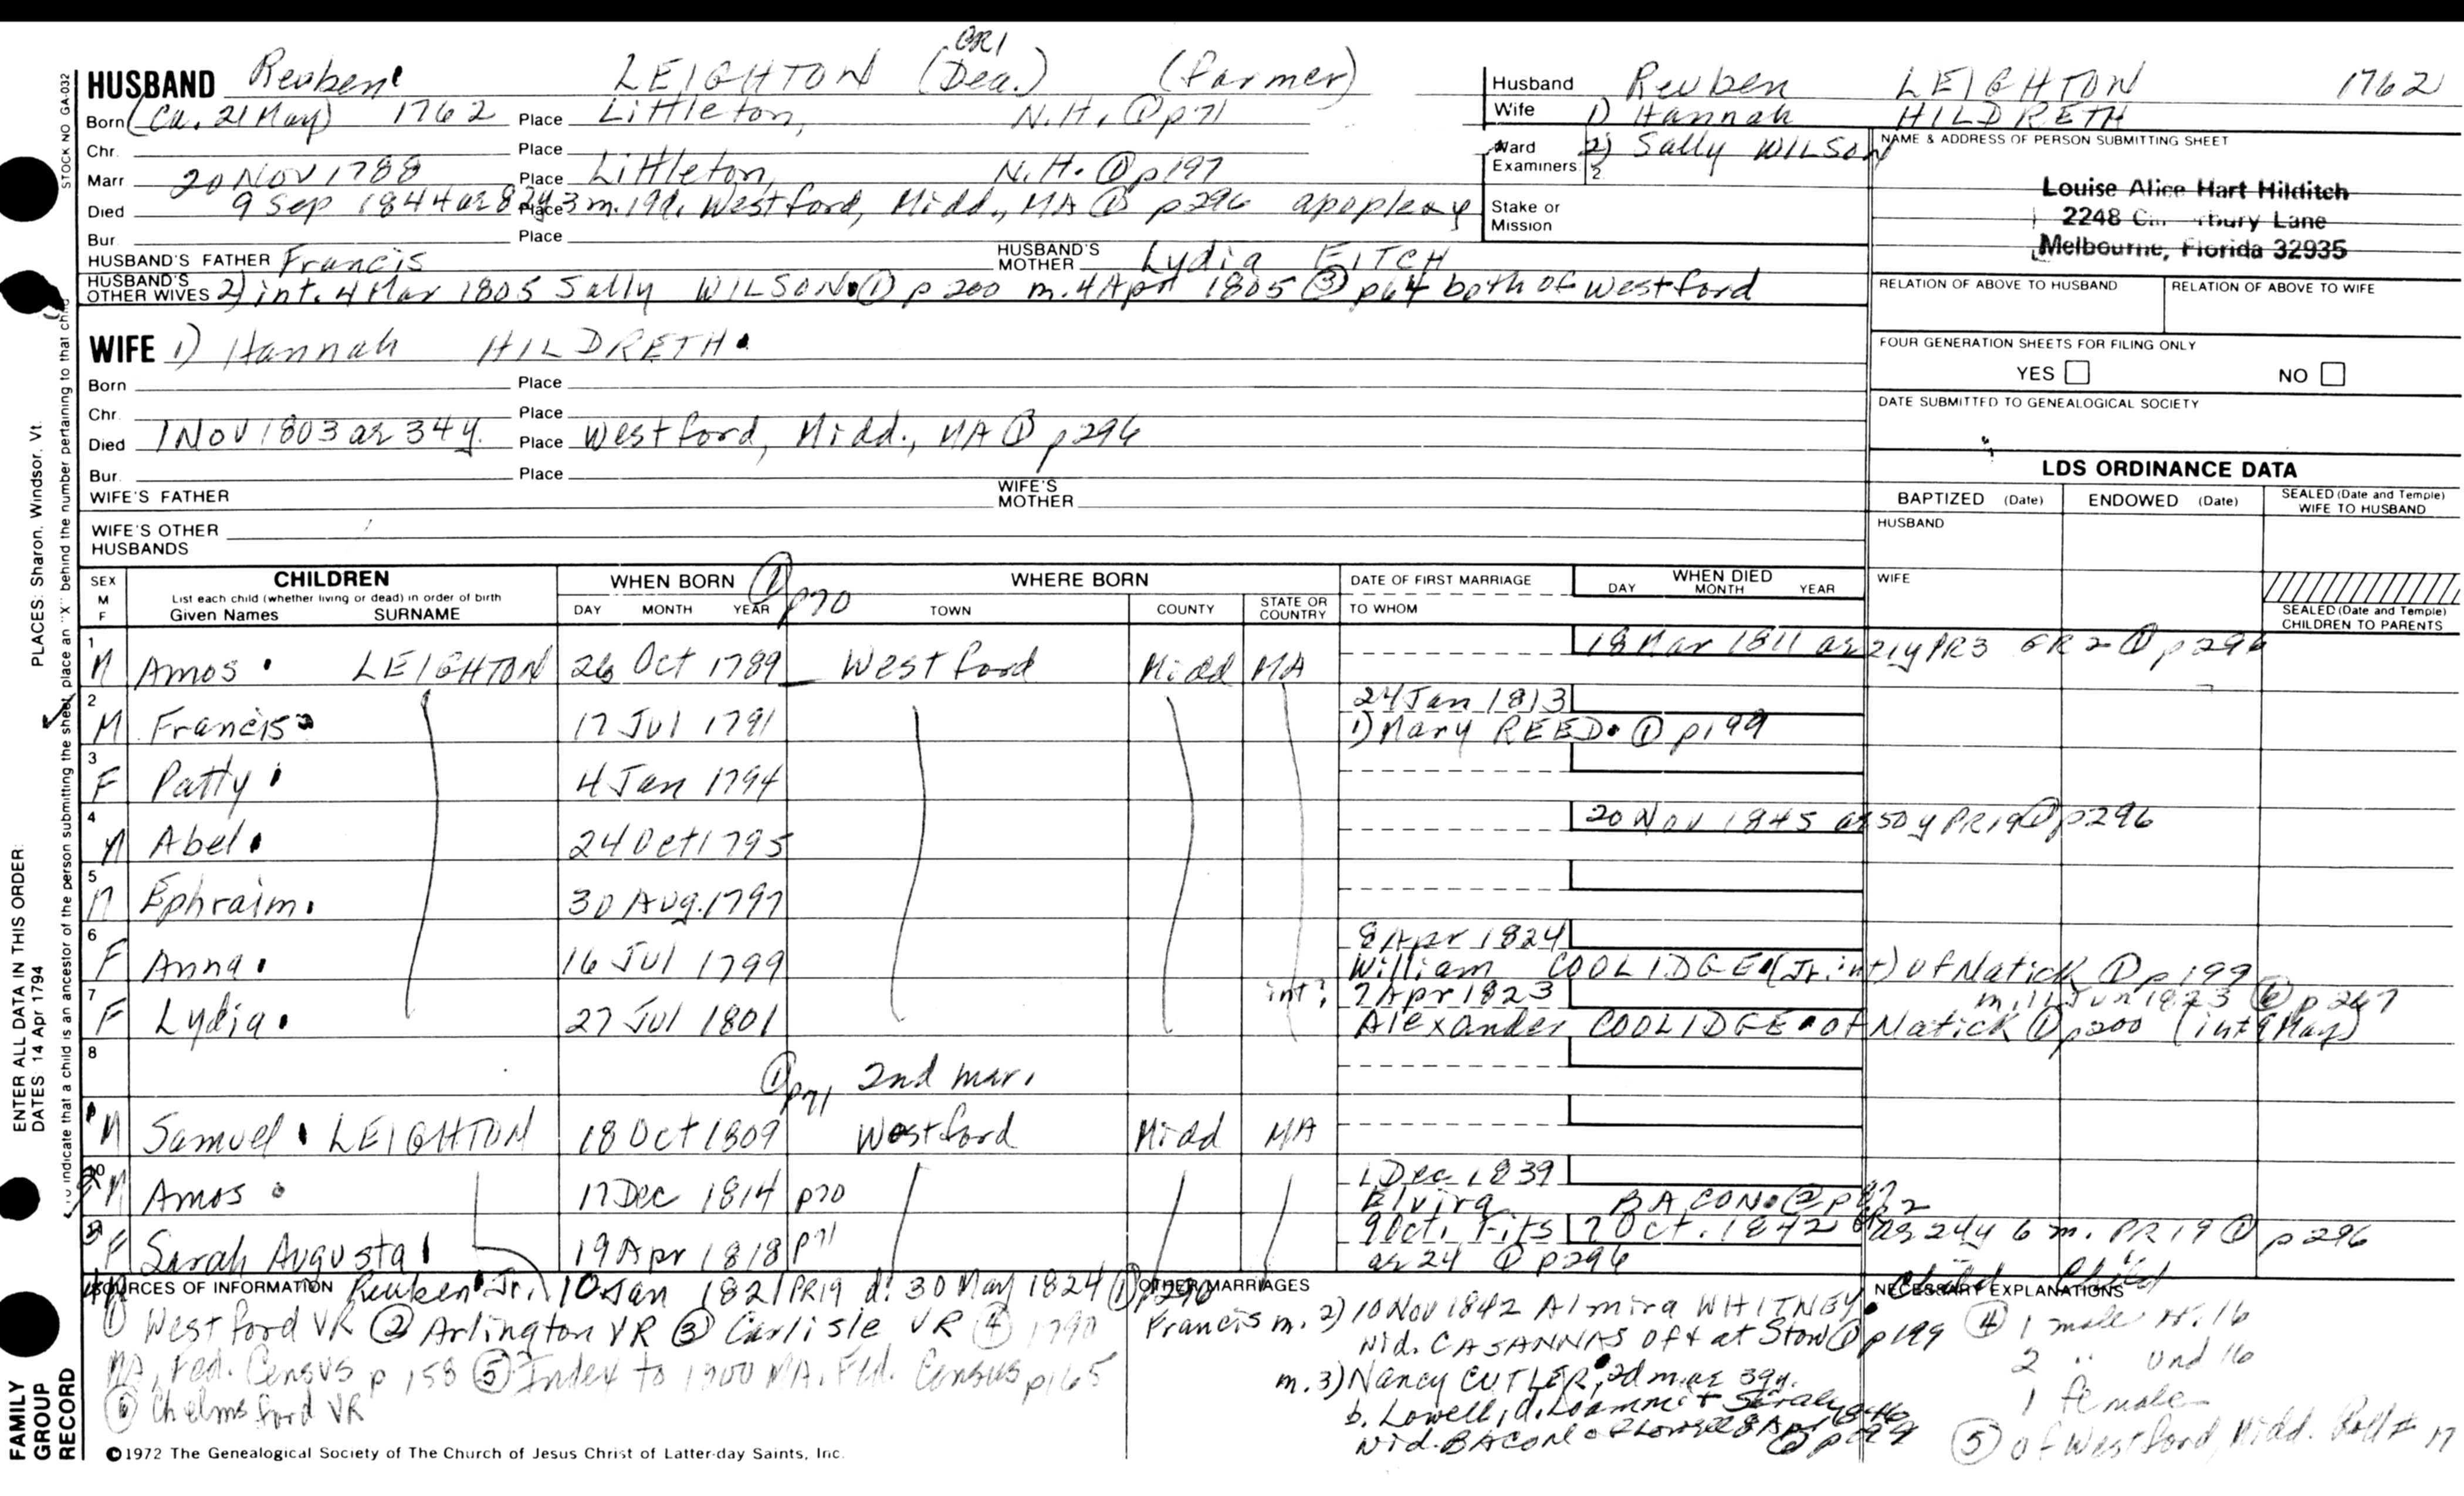 HUSBAND Reuben LEIGHTON (Dea.) GR1 (farmer)
Born (Ca. 21 May) 1762 Place Littleton, N.H. ① p71
Chr. Place
Marr 20 Nov 1788 Place Littleton, N.H. ① p197
Died 9 Sep 1844 ae 82y 3m. 19d. Place Westford, Midd., MA ① p296 apoplexy
Bur. Place
HUSBAND'S FATHER Francis HUSBAND'S MOTHER Lydia FITCH
HUSBAND'S OTHER WIVES 2) int. 4 Mar 1805 Sally WILSON ① p200 m. 4 Apr 1805 ③ p64 both of Westford
Husband Reuben LEIGHTON 1762
Wife 1) Hannah HILDRETH
Ward Examiners 1 2 2) Sally WILSON
Stake or Mission
NAME & ADDRESS OF PERSON SUBMITTING SHEET
Louise Alice Hart Hilditch
2248 Lane
Melbourne, Florida 32935
RELATION OF ABOVE TO HUSBAND RELATION OF ABOVE TO WIFE
FOUR GENERATION SHEETS FOR FILING ONLY
YES NO
DATE SUBMITTED TO GENEALOGICAL SOCIETY
WIFE 1) Hannah HILDRETH
Born Place
Chr. Place
Died 1 Nov 1803 ae 34 y. Place Westford, Midd., MA ① p296
Bur. Place
WIFE'S FATHER WIFE'S MOTHER
WIFE'S OTHER HUSBANDS
LDS ORDINANCE DATA
BAPTIZED (Date) ENDOWED (Date) SEALED (Date and Temple) WIFE TO HUSBAND
HUSBAND
WIFE
SEALED (Date and Temple) CHILDREN TO PARENTS
SEX M F CHILDREN List each child (whether living or dead) in order of birth Given Names SURNAME
WHEN BORN DAY MONTH YEAR ① p70 WHERE BORN TOWN COUNTY STATE OR COUNTRY
DATE OF FIRST MARRIAGE TO WHOM WHEN DIED DAY MONTH YEAR
1 M Amos LEIGHTON 26 Oct 1789 Westford Midd MA 18 Mar 1811 ae 21y PR3 GR2 ① p296
2 M Francis 17 Jul 1791 24 Jan 1813
1) Mary REED ① p199
3 F Patty 4 Jan 1794
4 M Abel 24 Oct 1795 20 Nov 1845 ae 50 y PR19 ① p296
5 M Ephraim 30 Aug. 1797
6 F Anna 16 Jul 1799 8 Apr 1824
William COOLIDGE (Jr. int) of Natick ① p199
7 F Lydia 27 Jul 1801 int? 7 Apr 1823 m. 11 Jun 1823 ⑥ p267
Alexander COOLIDGE of Natick ① p200 (int 9 May)
8
① p71 2nd mar.
M Samuel LEIGHTON 18 Oct 1809 Westford Midd MA
10 M Amos 17 Dec 1814 p70 1 Dec 1839
Elvira BACON ②
F Sarah Augusta 19 Apr 1818 p71 9 Oct. Fits 7 Oct. 1842 ae 24y 6 m. PR 19 ① p296
ae 24 ① p296
Reuben Jr. 10 Jan 1821 PR19 d. 30 May 1824 ① p296 Child
SOURCES OF INFORMATION
① Westford VR ② Arlington VR ③ Carlisle VR ④ 1790
MA, Fed. Census p 158 ⑤ Index to 1800 MA. Fed. Census p165
⑥ Chelmsford VR
OTHER MARRIAGES
Francis m. 2) 10 Nov 1842 Almira WHITNEY
Wid. CASANNAS of + at Stow ① p199
m. 3) Nancy CUTLER, 2d m. ae 39y.
b. Lowell, d. Loammi + Sarah
Wid. BACON of Lowell 8 Apr 1846
① p199
NECESSARY EXPLANATIONS
④ 1 male 16
2 " und 16
1 female
⑤ of Westford, Midd. Roll # 17
©1972 The Genealogical Society of The Church of Jesus Christ of Latter-day Saints, Inc.
STOCK NO. GA-032
To indicate that a child is an ancestor of the person submitting the sheet, place an "X" behind the number pertaining to that child
PLACES: Sharon, Windsor, Vt.
ENTER ALL DATA IN THIS ORDER:
DATES: 14 Apr 1794
FAMILY GROUP RECORD